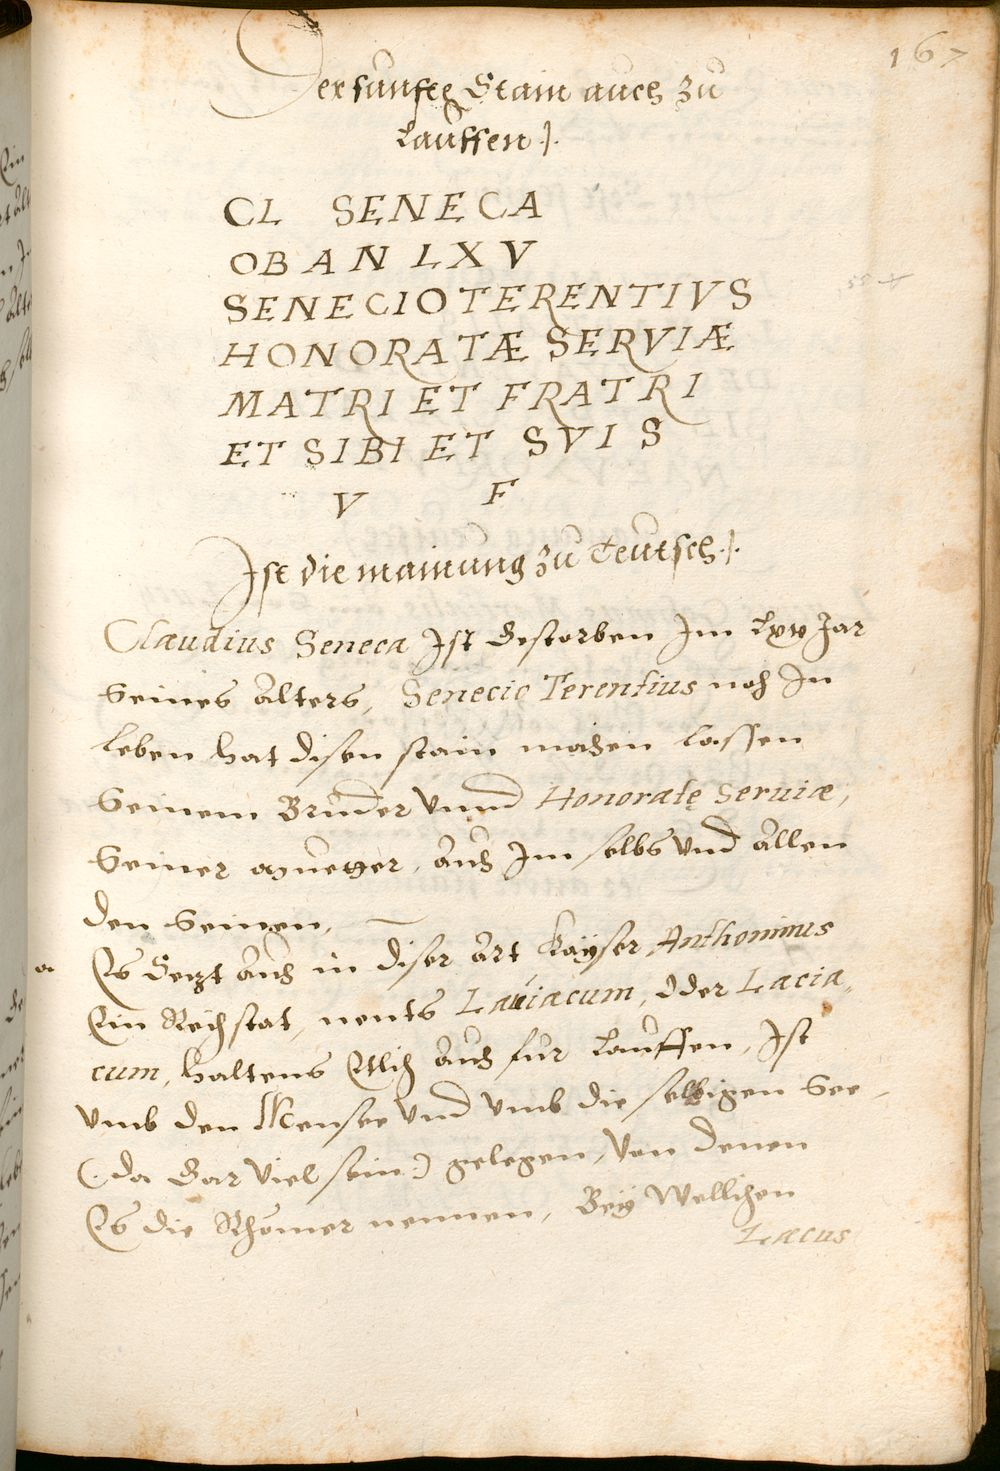 167
Der funfte Stain auch zu
Lauffen ⁊.
CL SENECA
OB AN LXV
SENECIO TERENTIVS
HONORATÆ SERVIÆ
MATRI ET FRATRI
ET SIBI ET SVIS
V F
Ist die mainung zu Teutsch ⁊.
Claudius Seneca Ist Gestorben Im Lxv Jar
Seines Alters, Senecio Terentius noch In
Leben hat disen stain machen lassen
Seinem Bruder Unnd Honoratę Seruiæ,
Seiner mueter, auch Im selbs Und Allen
den Seinen,
Es Sezt auch in diser Art Kayser Anthoninus
Ein Reichstat, nents Lauiacum, Oder Lacia,,
cum, haltens Etlich auch fur Lauffen, Ist
umb den Mensee Und umb die selbigen See
(: da Gar Viel sein :) gelegen, Von denen
Es die Rhömer nennen, Bey Wellichen
Lacus